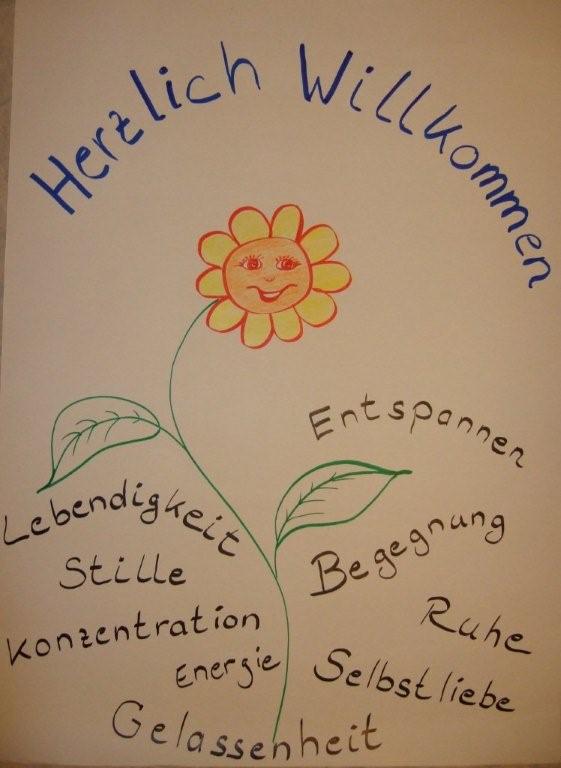 Herzlich Willkommen
Entspannen
Lebendigkeit
Begegnung
Stille
Ruhe
Konzentration
Energie
Selbstliebe
Gelassenheit